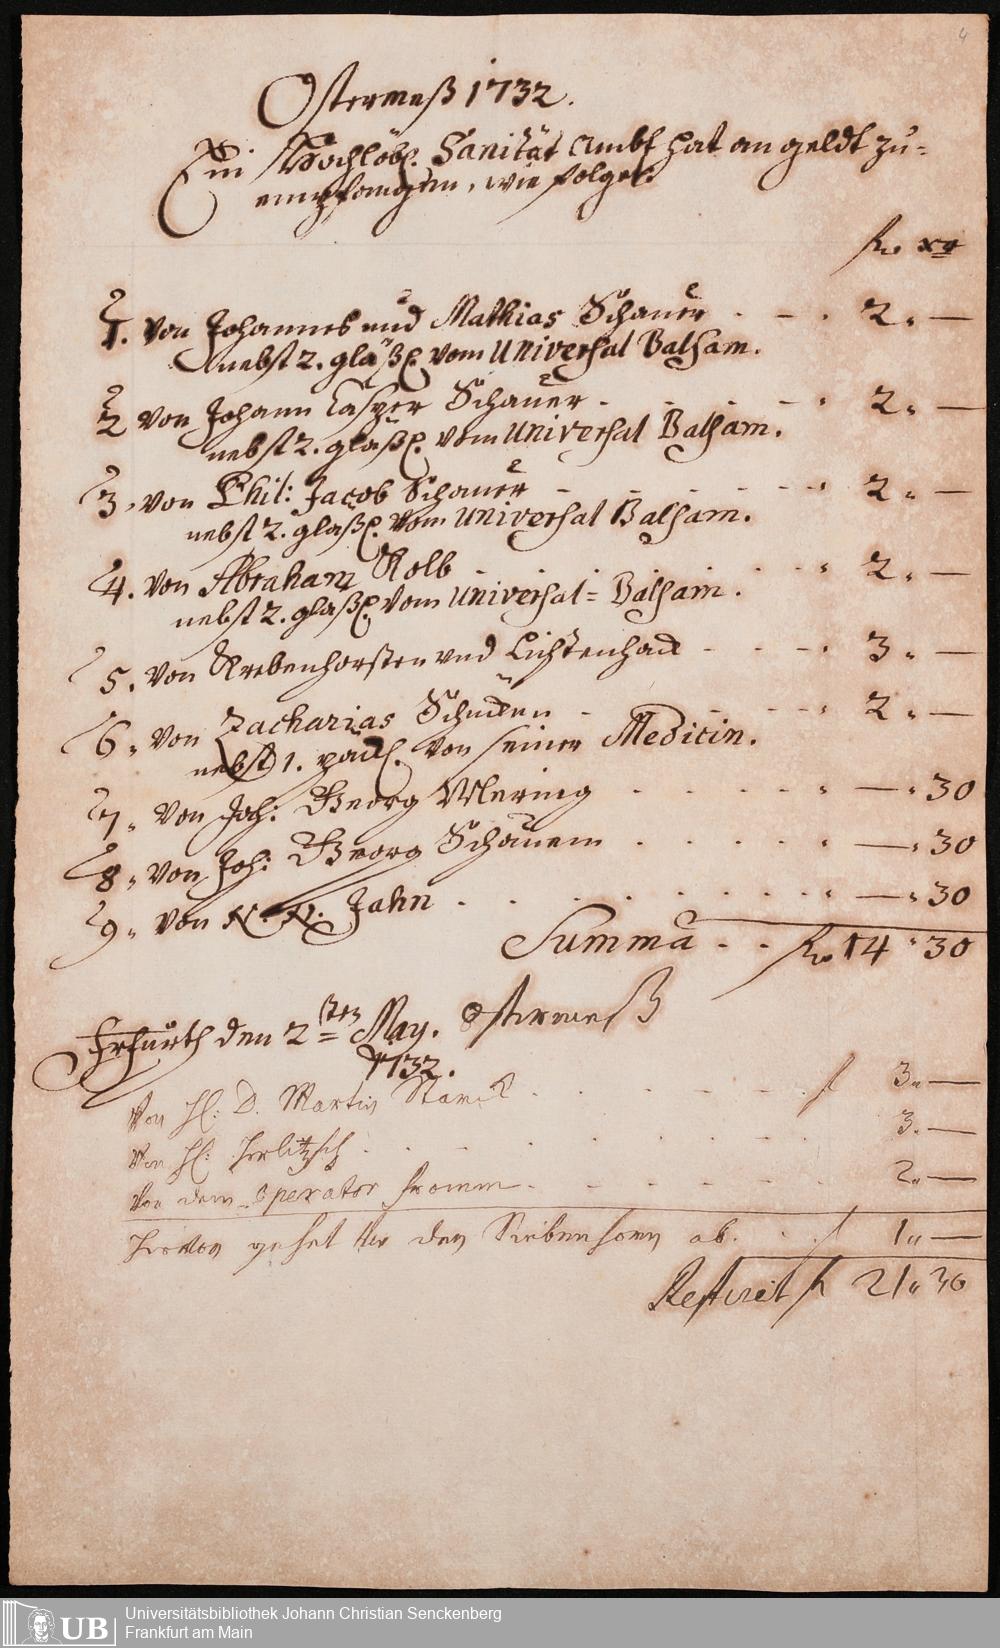 4
Ostermeß 1732.
Ein Hochlöbl. Sanität Ambt hat an geldt zu=
empfangen, wie folget:
fl. xr
1. Von Johannes und Mathias Schauer - - . 2. —
nebst 2. glaßl. vom Universal Balsam.
2 von Johann Casper Schauer - . - . - . 2. —
nebst 2. glaßl. vom Universal Balsam.
3. von Phil: Jacob Schauer - - - - - . 2. —
nebst 2. glaßl. vom Universal Balsam.
4. von Abraham Kolb - . . . . . 2. —
nebst 2. glaßl. vom Universal= Balsam.
5. von Krebenhorsten und Lichtenhan - - - . 3. —
6. von Zacharias - - - - . 2. —
nebst 1. päckl. von seiner Medicin.
7. von Joh: Georg - - - - . — . 30
8. von Joh: Georg Schauern . . . . . — . 30
9. von N. N. Jahn . . . . . . . — . 30
Summa - - fl. 14 . 30
Erfurth den 2ten May. Ostermeß
1732.
Von H: D. Martin Starck . . - . - . . f 3. —
Von H: . . . . . . . 3. —
Von dem Operator fromm - - - - . . 2. —
Hievon gehet vor den Siebenhorn ab. . . f 1. —
Restiret fl 21. 30
Universitätsbibliothek Johann Christian Senckenberg
UB Frankfurt am Main